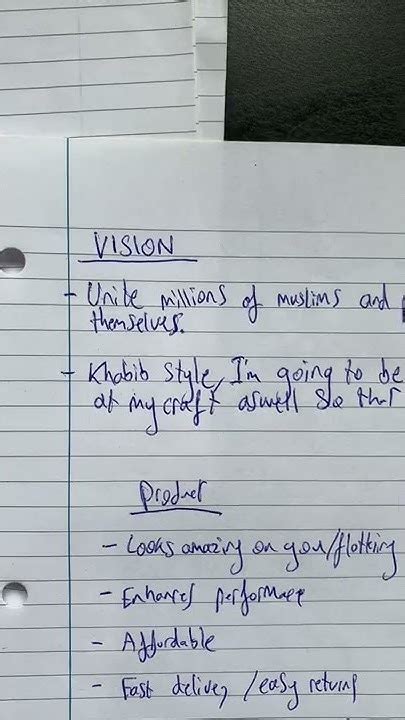 VISION
- Unite millions of muslims and
themselves.
- Khabib style, I'm going to be
at my craft aswell so that
Product
- Looks amazing on you/flatting
- Enhances performance
- Affordable
- Fast delivery / easy returns